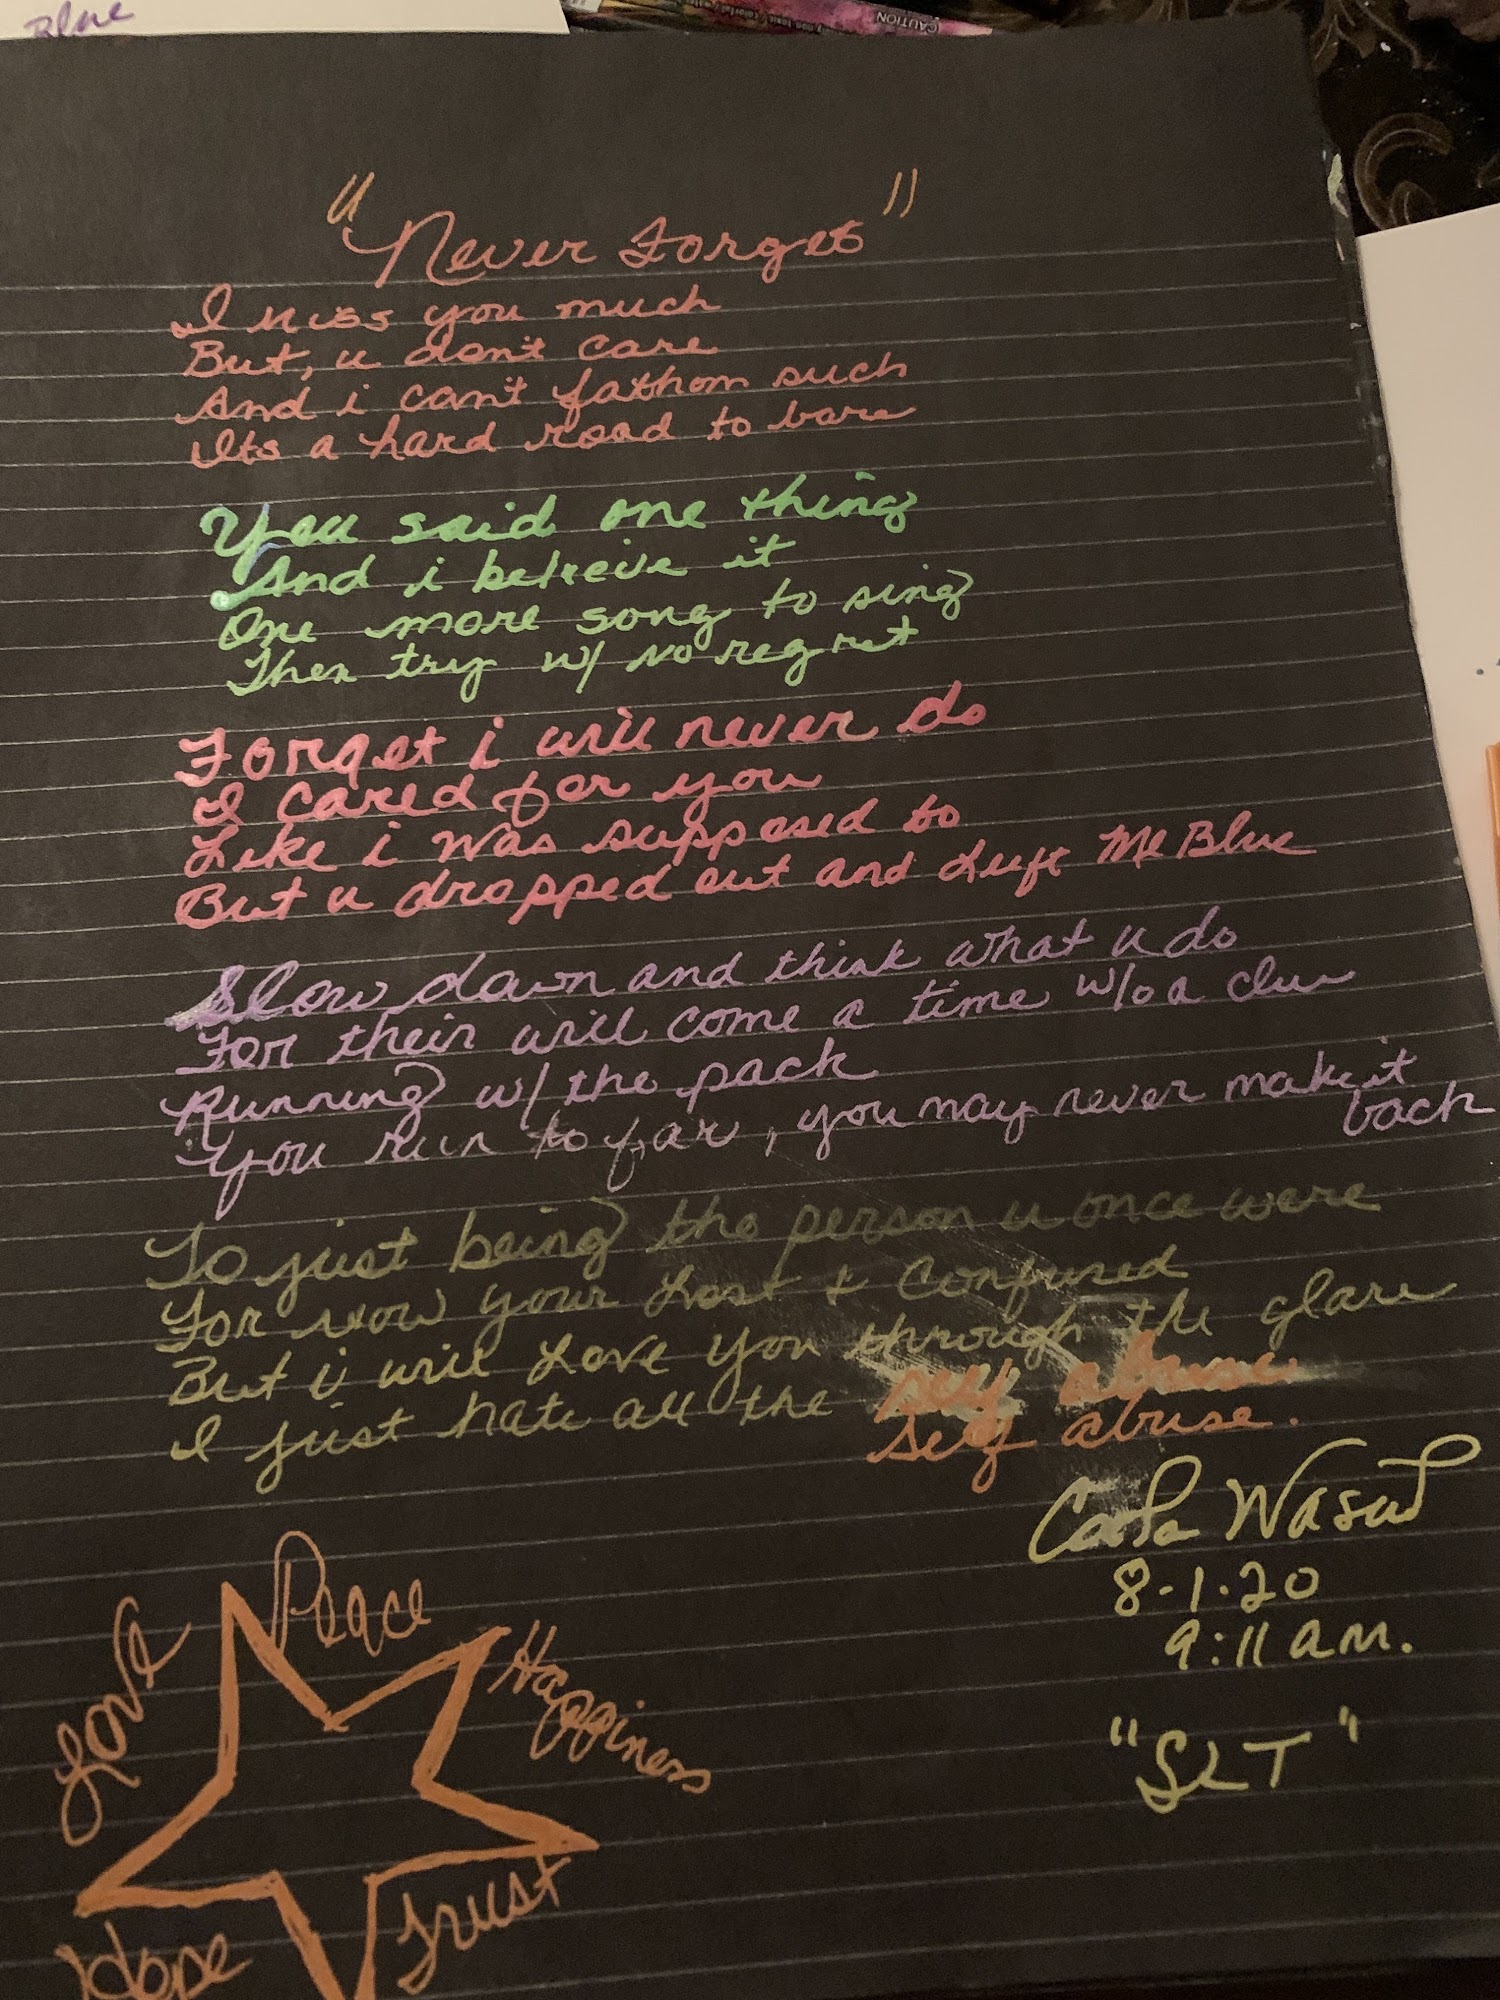 Blue
CAUTION
"Never Forget"
I miss you much
But, u don't care
And i can't fathom such
Its a hard road to bare
You said one thing
And i beleive it
One more song to sing
Then try w/ no regret
Forget i will never do
I cared for you
Like i was supposed to
But u dropped out and left me Blue
Slow down and think what u do
For their will come a time w/o a clue
Running w/ the pack
You run to far, you may never make it
back
To just being the person u once were
For now your Lost & Confused
But i will Love you through the glare
I just hate all the self abuse
self abuse.
8-1-20
9:11 am.
"SLT"
Love
Peace
Happiness
Hope
Trust